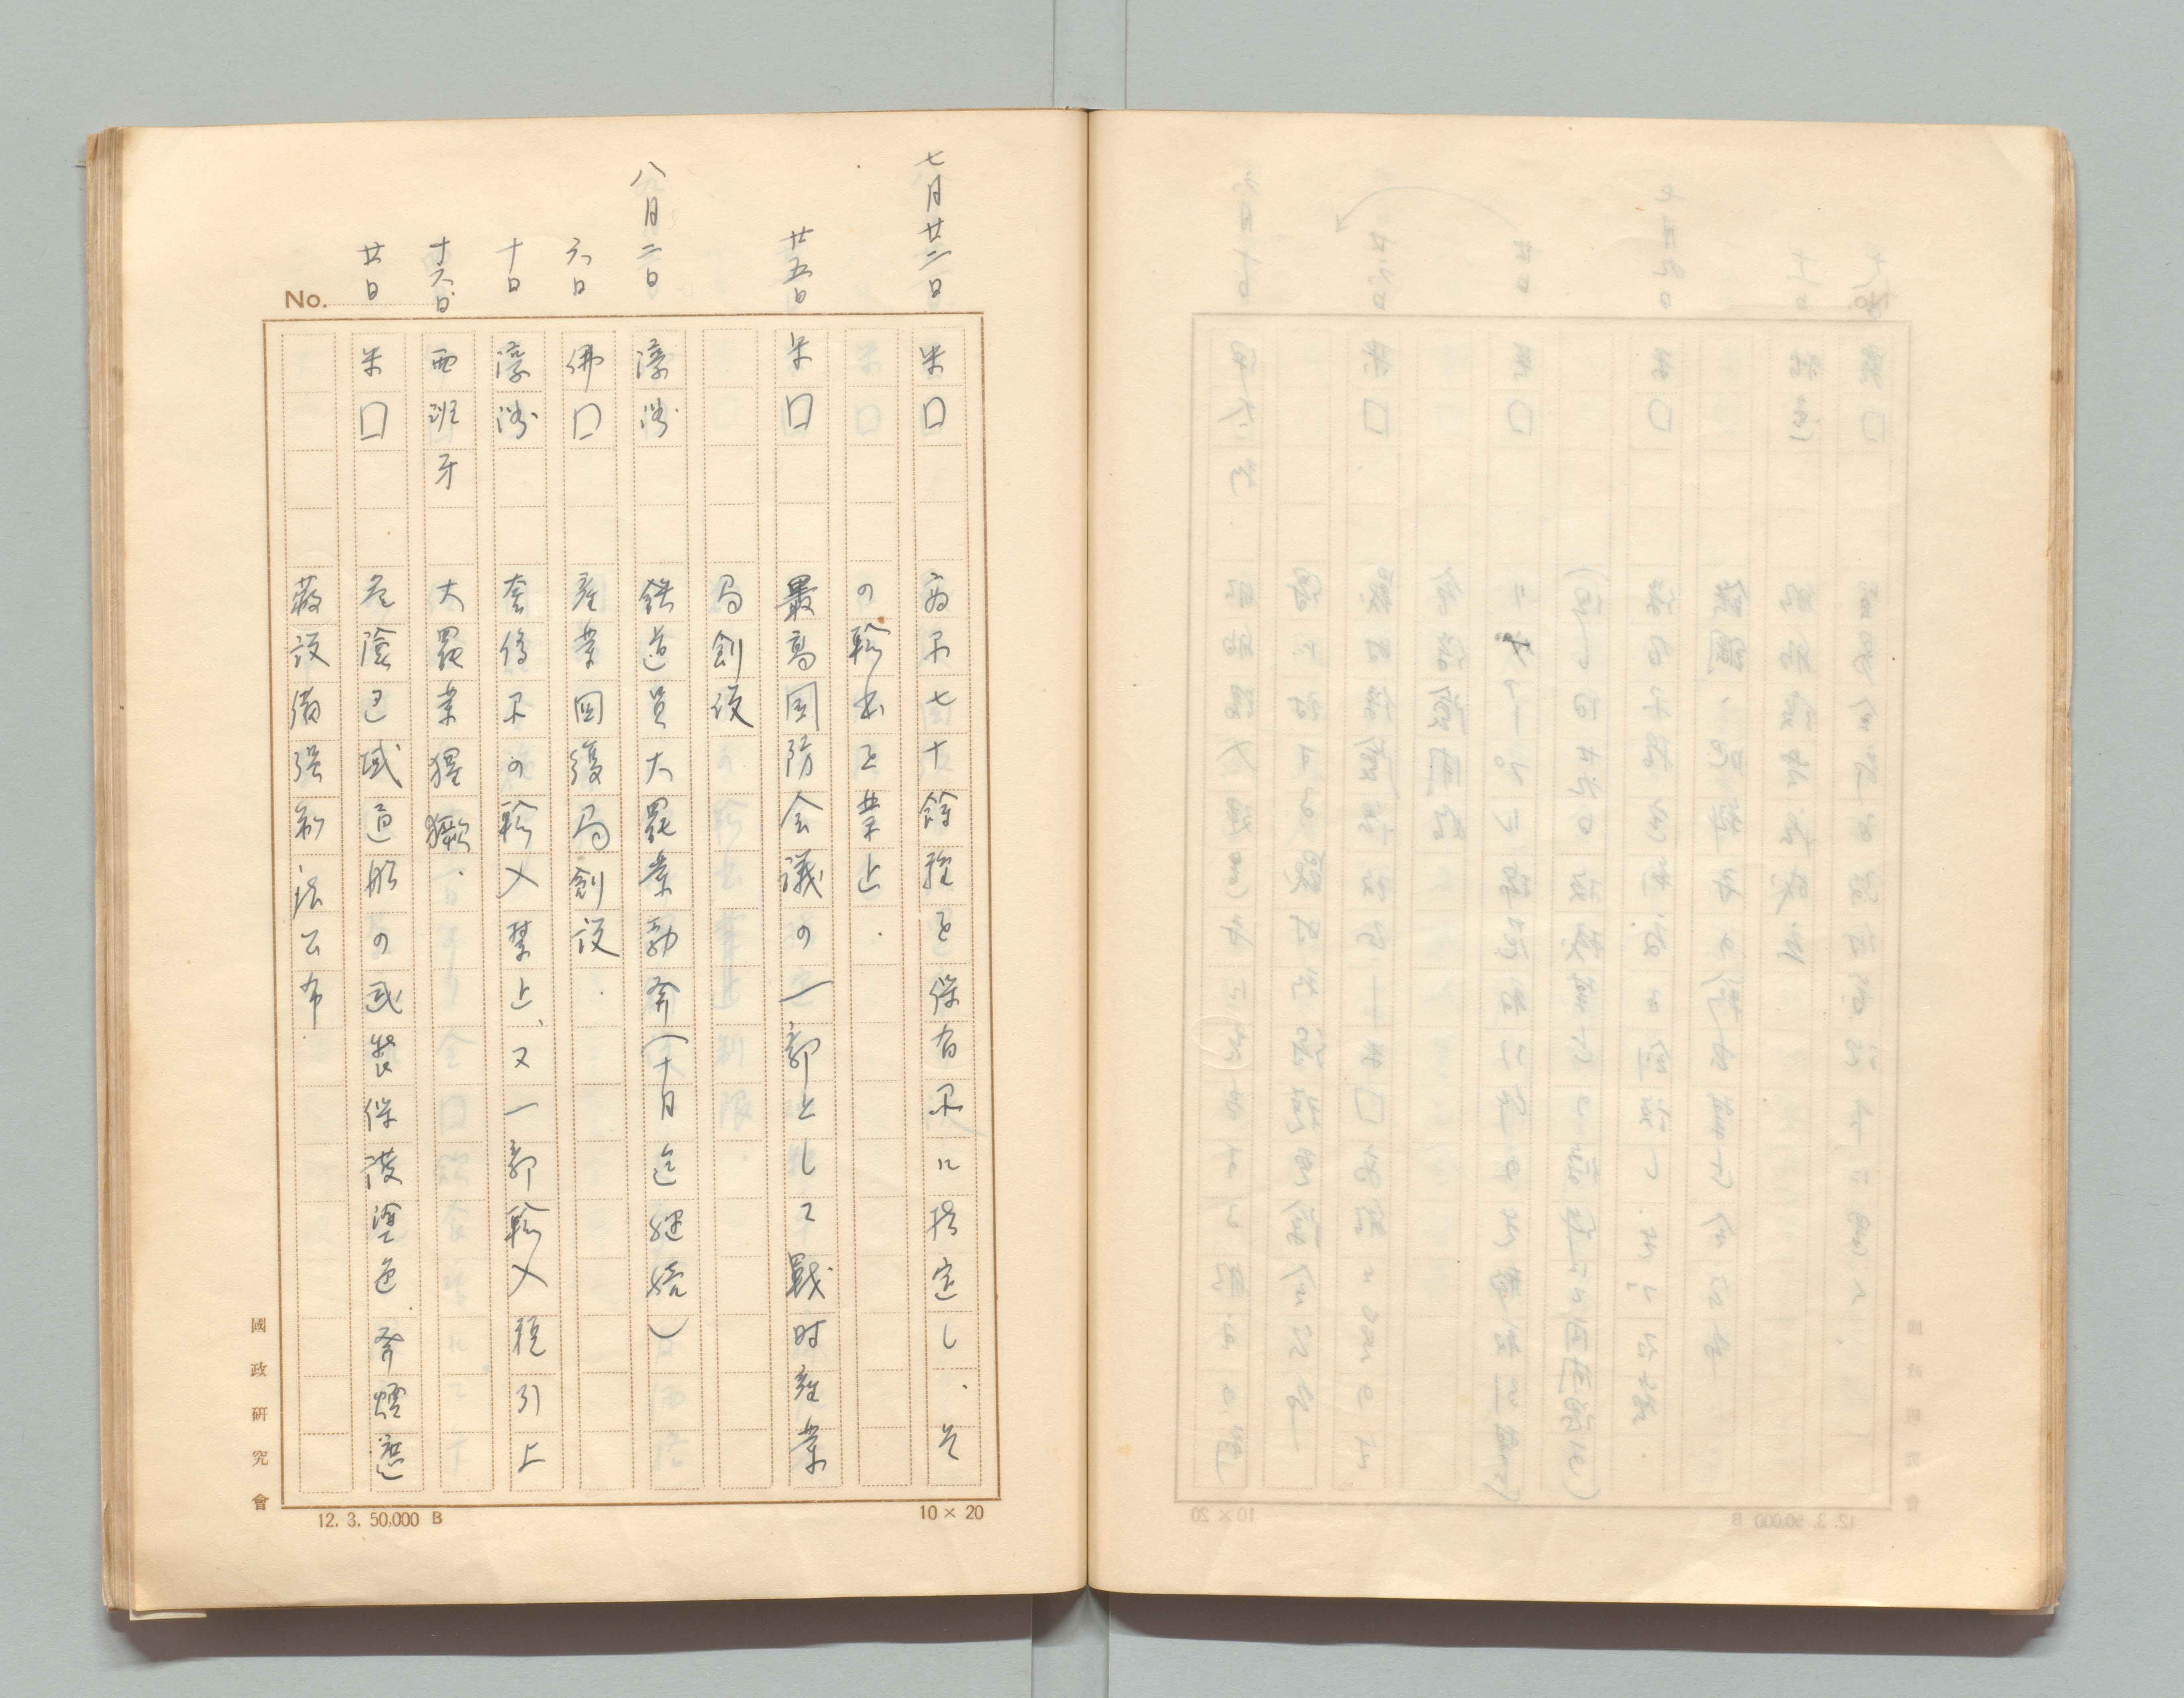 七月廿二日 米囗 商品七十餘種を保有品に指定し、そ
の輸出を禁止.
廿五日 米囗 最高国防会議の一部として戦时産業
局創設
八月二日 濠洲 鉄道員大罷業勃発(十月迄継続)
六日 佛囗 産業回復局創設.
十日 濠洲 奢侈品の輸入禁止、又一部輸入税引上
十六日 西班牙 大罷業猖獗.
廿日 米囗 危険区域通船の武装保護塗色.発煙遮
蔽設備强制法公布.
No.
國政研究會
12. 3. 50,000 B
10 × 20